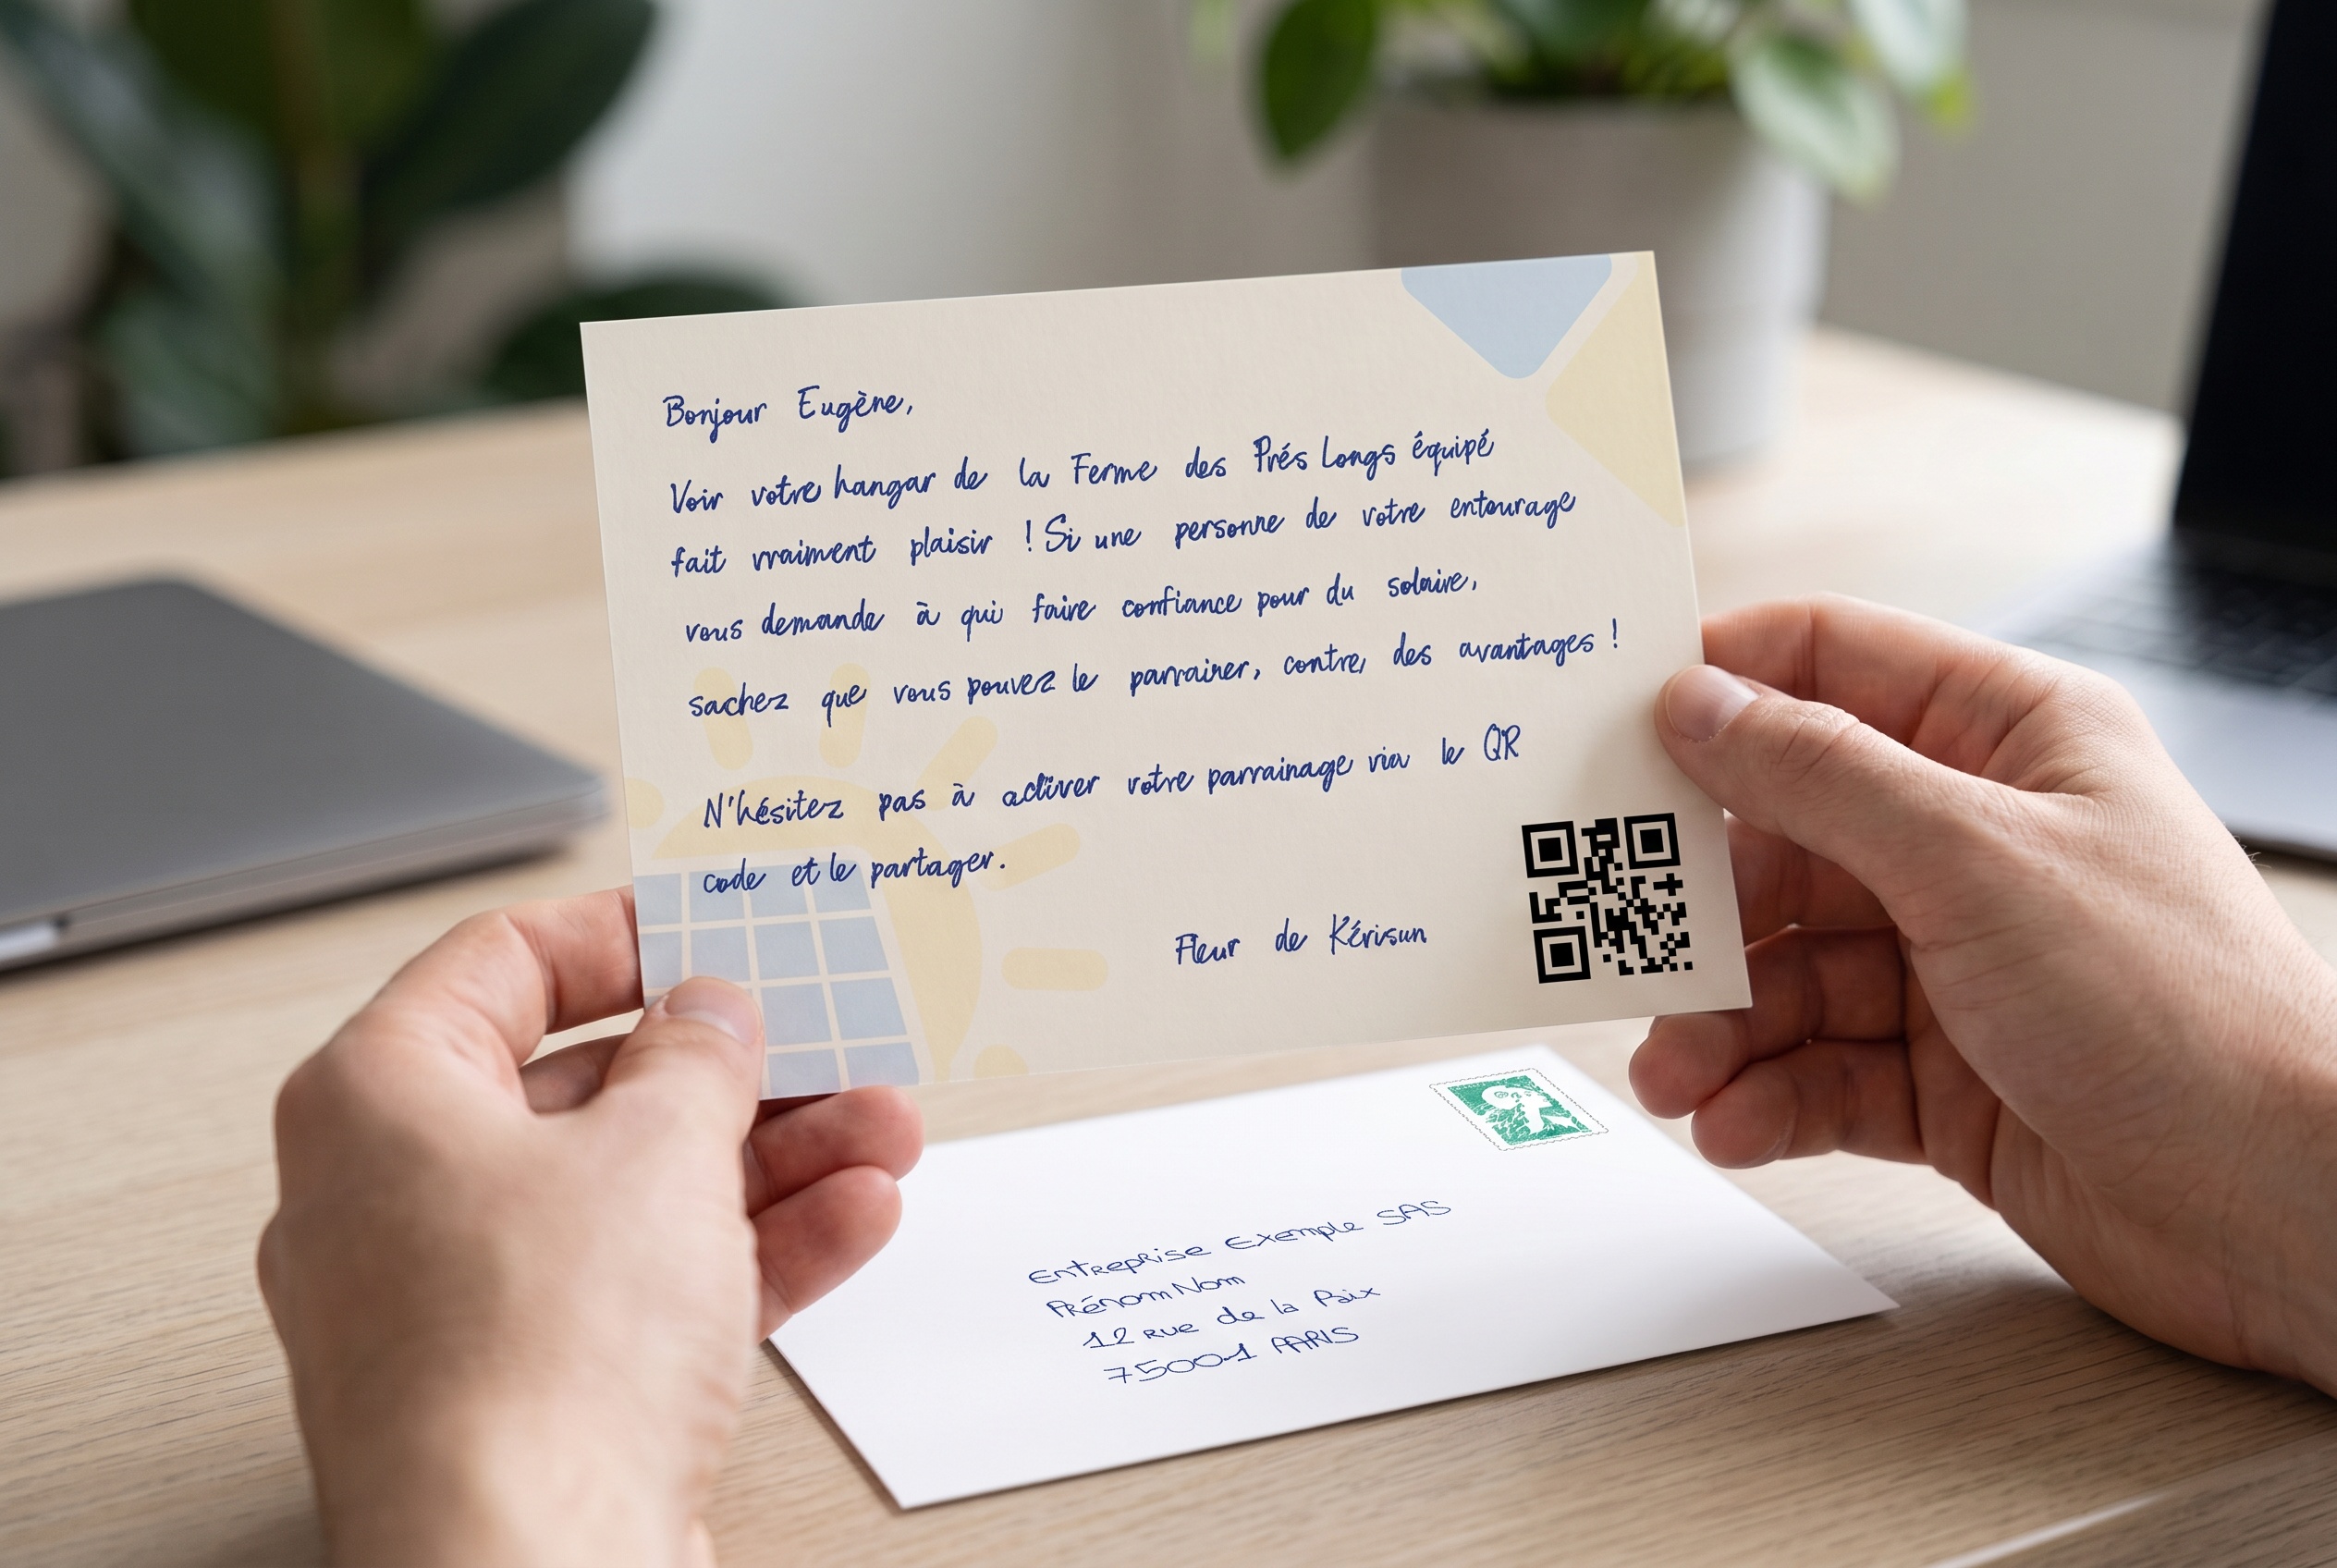 Bonjour Eugène,
Voir votre hangar de la Ferme des Prés Longs équipé
fait vraiment plaisir ! Si une personne de votre entourage
vous demande à qui faire confiance pour du solaire,
sachez que vous pouvez le parrainer, contre, des avantages !
N'hésitez pas à activer votre parrainage via le QR
code et le partager.
Fleur de Kérisun
Entreprise Exemple SAS
Prénom Nom
12 rue de la Paix
75001 PARIS